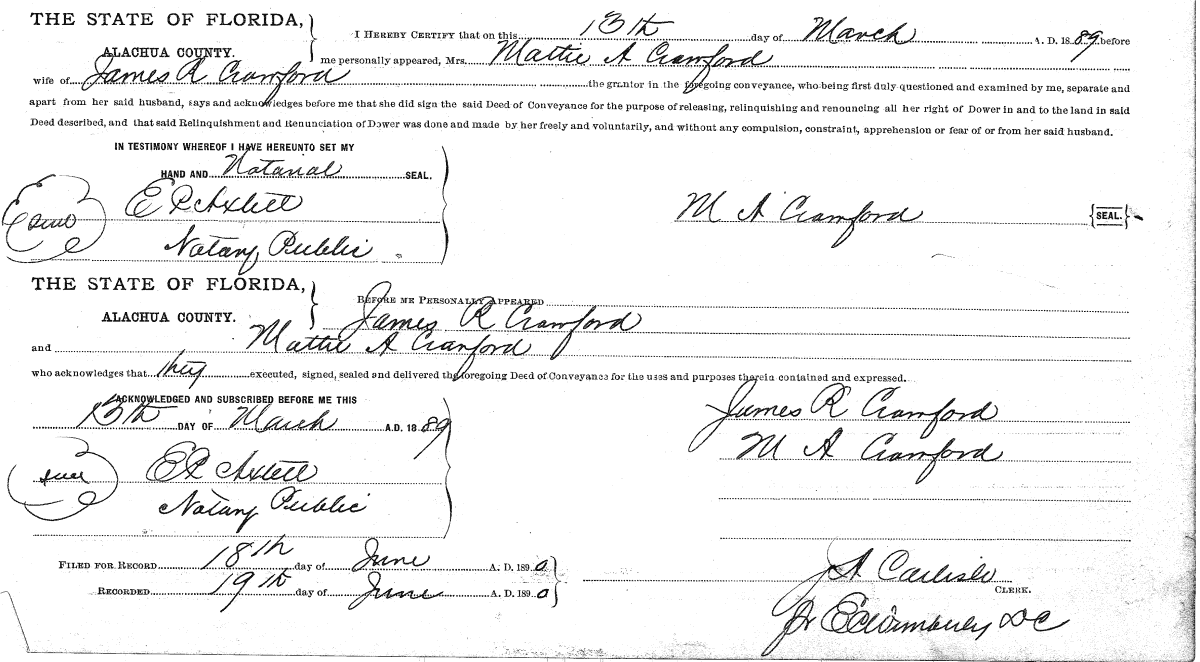 THE STATE OF FLORIDA,
ALACHUA COUNTY.
I HEREBY CERTIFY that on this 13th day of March A. D. 1889 before
me personally appeared, Mrs. Mattie A Crawford
wife of James R Crawford the grantor in the foregoing conveyance, who being first duly questioned and examined by me, separate and
apart from her said husband, says and acknowledges before me that she did sign the said Deed of Conveyance for the purpose of releasing, relinquishing and renouncing all her right of Dower in and to the land in said
Deed described, and that said Relinquishment and Renunciation of Dower was done and made by her freely and voluntarily, and without any compulsion, constraint, apprehension or fear of or from her said husband.
IN TESTIMONY WHEREOF I HAVE HEREUNTO SET MY
HAND AND Notarial SEAL.
Seal
E P Axtell
Notary Public
M A Crawford {SEAL.}
THE STATE OF FLORIDA,
ALACHUA COUNTY.
BEFORE ME PERSONALLY APPEARED
James R Crawford
and Mattie A Crawford
who acknowledges that they executed, signed, sealed and delivered the foregoing Deed of Conveyance for the uses and purposes therein contained and expressed.
ACKNOWLEDGED AND SUBSCRIBED BEFORE ME THIS
13th DAY OF March A.D. 1889
Seal
E P Axtell
Notary Public
James R Crawford
M A Crawford
FILED FOR RECORD 18th day of June A. D. 1890
RECORDED 19th day of June A. D. 1890
J A Carlisle
CLERK.
DC